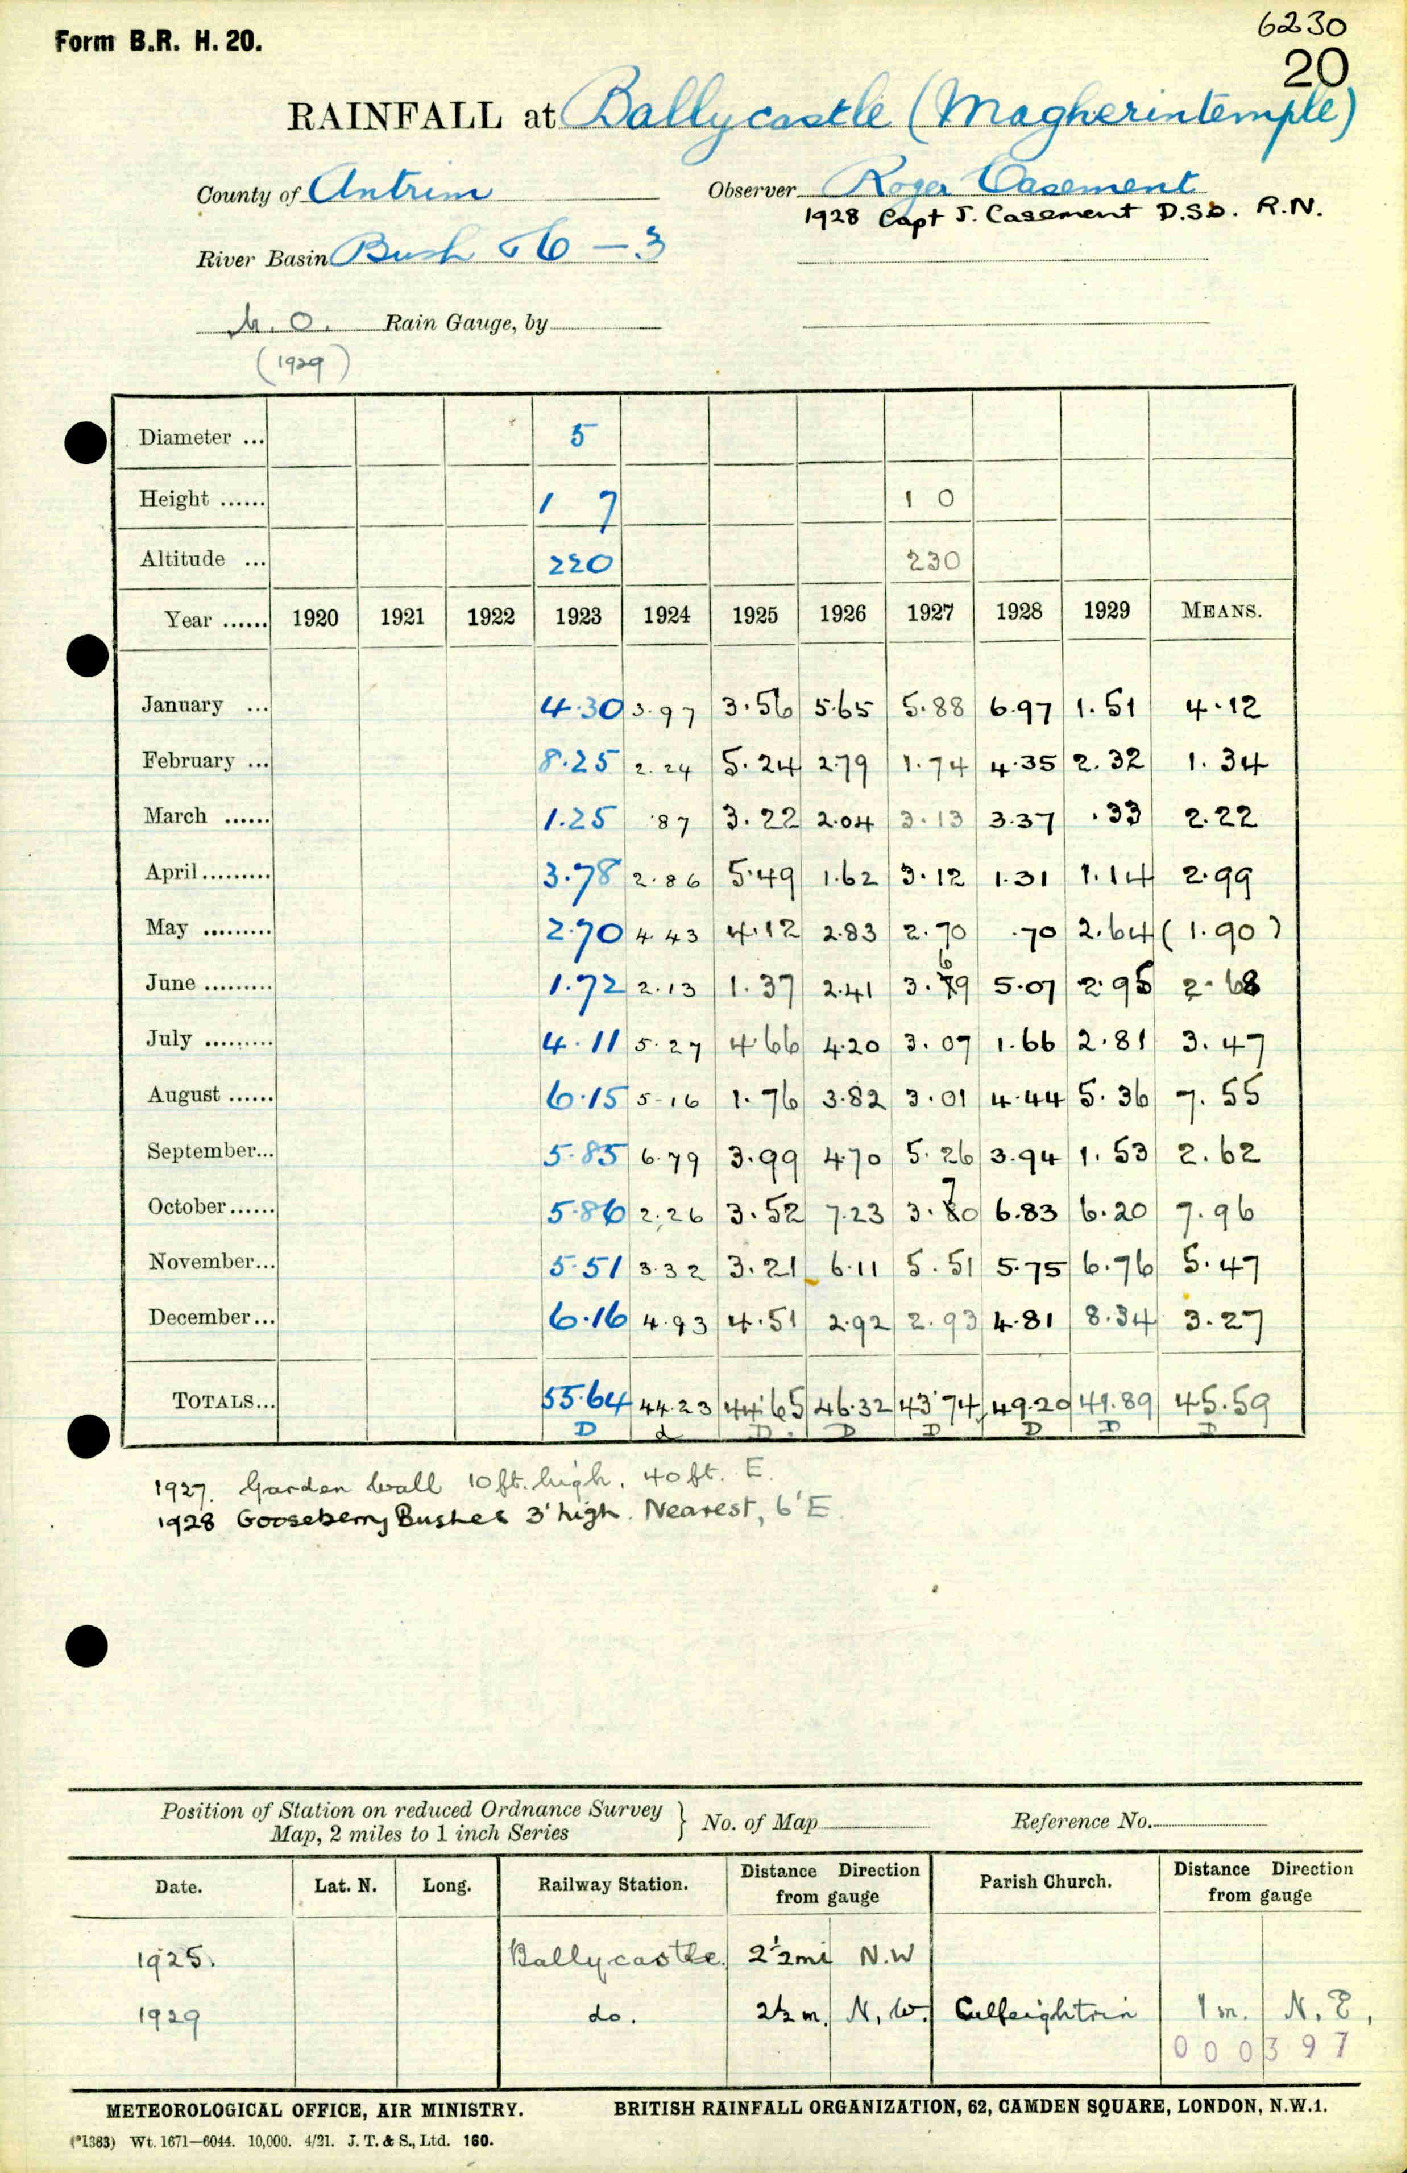 6230
Form B.R. H. 20.
20
RAINFALL at Ballycastle (Magherintemple)
County of Antrim Observer Roger Casement
1928 Capt J. Casement D.S.O. R.N.
River Basin Bush &c - 3
M.O. Rain Gauge, by
(1929)
Diameter ... 5
Height ...... 1 7 1 0
Altitude ... 220 230
Year ...... 1920 1921 1922 1923 1924 1925 1926 1927 1928 1929 MEANS.
January ... 4.30 3.97 3.56 5.65 5.88 6.97 1.51 4.12
February ... 8.25 2.24 5.24 2.79 1.74 4.35 2.32 1.34
March ...... 1.25 .87 3.22 2.04 3.13 3.37 .33 2.22
April ......... 3.78 2.86 5.49 1.62 3.12 1.31 1.14 2.99
May ......... 2.70 4.43 4.12 2.83 2.70 .70 2.64 (1.90)
June ......... 1.72 2.13 1.37 2.41 3.69 5.07 2.95 2.68
July ......... 4.11 5.27 4.66 4.20 3.07 1.66 2.81 3.47
August ...... 6.15 5.16 1.76 3.82 3.01 4.44 5.36 7.55
September... 5.85 6.79 3.99 4.70 5.26 3.94 1.53 2.62
October ...... 5.86 2.26 3.52 7.23 3.70 6.83 6.20 7.96
November... 5.51 3.32 3.21 6.11 5.51 5.75 6.76 5.47
December ... 6.16 4.93 4.51 2.92 2.93 4.81 8.34 3.27
TOTALS... 55.64 44.23 44.65 46.32 43.74 49.20 41.89 45.59
D d D. D D D D D
1927. Garden wall 10 ft. high, 40 ft. E.
1928 Gooseberry Bushes 3' high. Nearest, 6' E
Position of Station on reduced Ordnance Survey Map, 2 miles to 1 inch Series } No. of Map Reference No.
Date. Lat. N. Long. Railway Station. Distance Direction from gauge Parish Church. Distance Direction from gauge
1925. Ballycastle. 2½ mi N.W
1929 do. 2½ m. N.W. Culfeightrin 1 m. N.E.
000397
METEOROLOGICAL OFFICE, AIR MINISTRY. BRITISH RAINFALL ORGANIZATION, 62, CAMDEN SQUARE, LONDON, N.W.1.
(*1383) Wt. 1671—6044. 10,000. 4/21. J. T. & S., Ltd. 160.